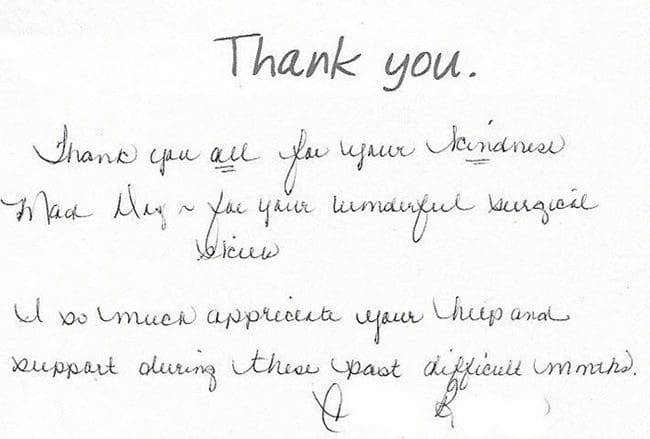 Thank you.
Thank you all for your kindness
for your wonderful surgical
skill
I so much appreciate your help and
support during these past difficult months.